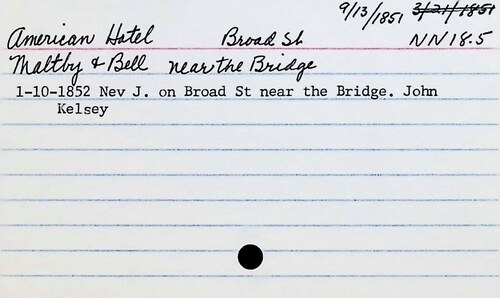 9/13/1851 3/21/1851
American Hotel Broad St. NN18.5
Maltby & Bell near the Bridge
1-10-1852 Nev J. on Broad St near the Bridge. John
Kelsey